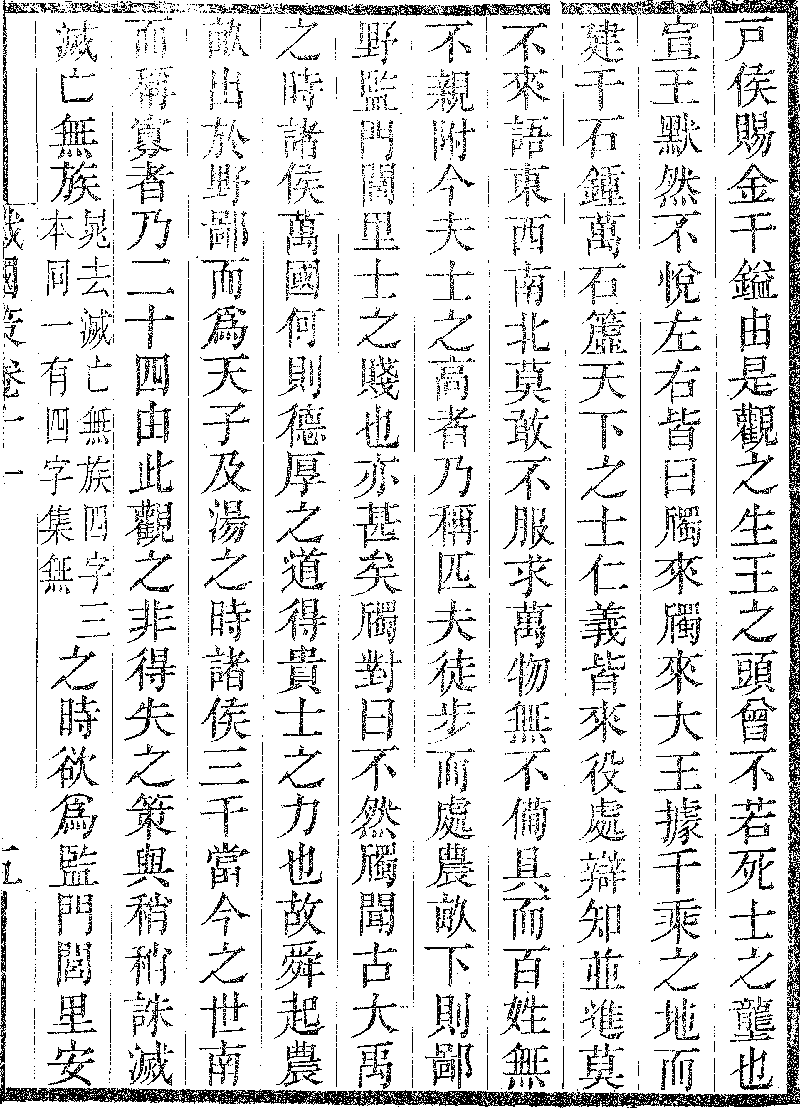 戸侯賜金千鎰由是觀之生王之頭曾不若死士之壟也
宣王默然不悅左右皆曰斶來斶來大王據千乘之地而
建千石鍾萬石簴天下之士仁義皆來役處辯知並進莫
不來語東西南北莫敢不服求萬物無不備具而百姓無
不親附今夫士之高者乃稱匹夫徒步而處農畝下則鄙
野監門閭里士之賤也亦甚矣斶對曰不然斶聞古大禹
之時諸侯萬國何則德厚之道得貴士之力也故舜起農
畝出於野鄙而爲天子及湯之時諸侯三千當今之世南
而稱寡者乃二十四由此觀之非得失之策與稍稍誅滅
滅亡無族晁去滅亡無族四字三本同一有四字集無之時欲爲監門閭里安
戰國策卷十一
五